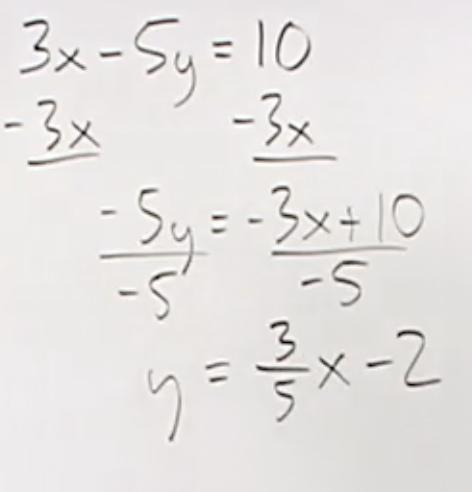 3x - 5y = 10
-3x -3x
-5y = -3x + 10
-5 -5
y = 3/5 x - 2